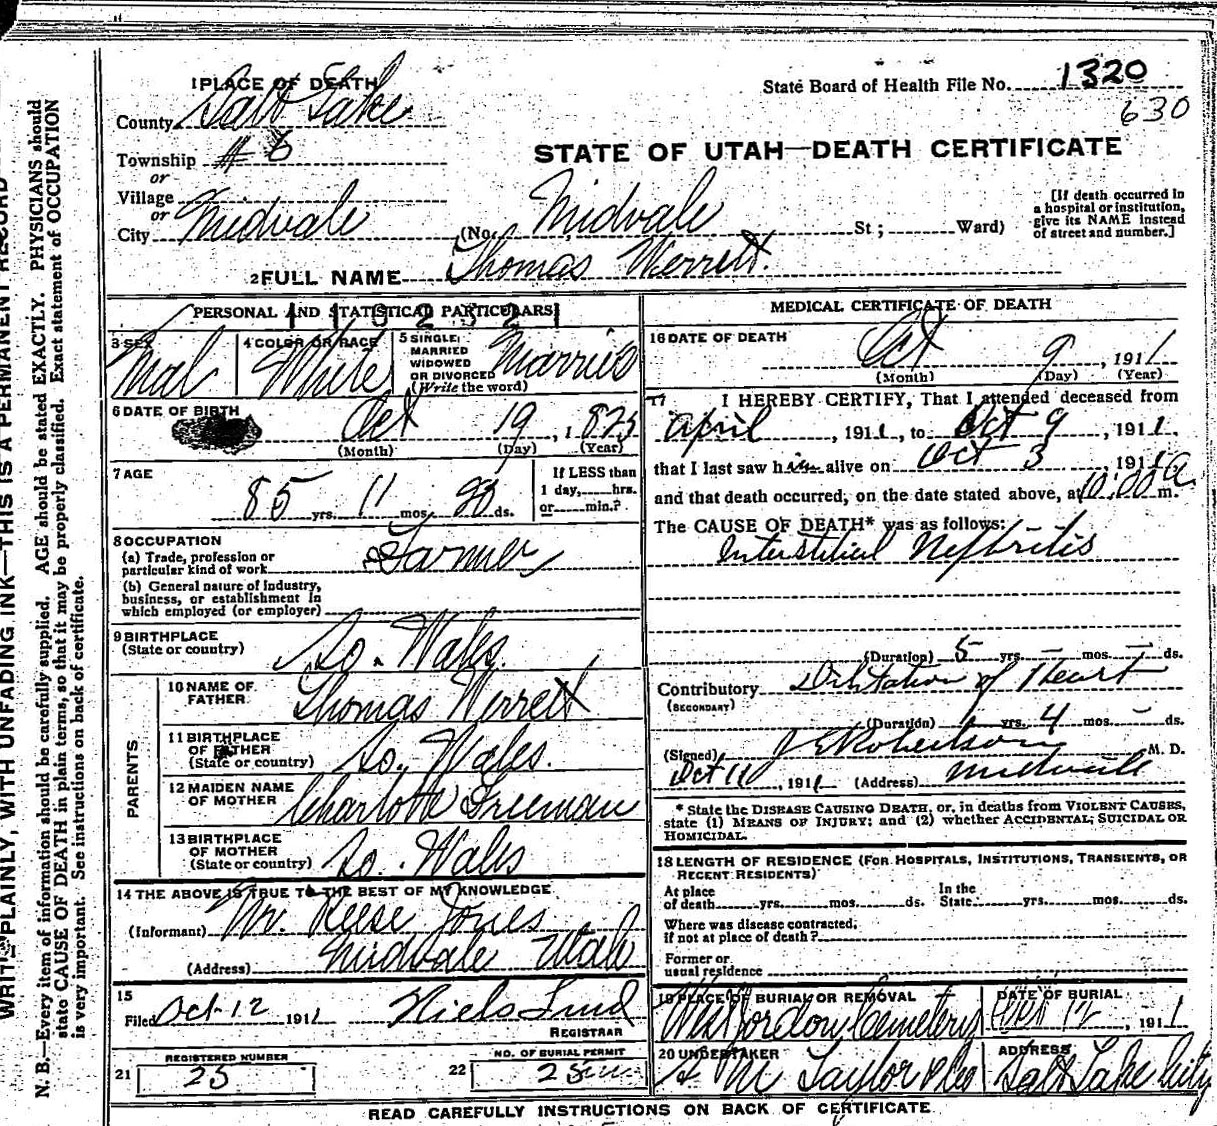 1 PLACE OF DEATH
State Board of Health File No. 1320
630
County Salt Lake
Township # 6
or
Village
or
City Midvale
STATE OF UTAH—DEATH CERTIFICATE
(No. Midvale St; Ward)
[If death occurred in
a hospital or institution,
give its NAME instead
of street and number.]
2 FULL NAME Thomas Werrett.
PERSONAL AND STATISTICAL PARTICULARS
3 SEX Mal
4 COLOR OR RACE White
5 SINGLE, MARRIED WIDOWED OR DIVORCED (Write the word) Married
6 DATE OF BIRTH Oct 19, 1825
(Month) (Day) (Year)
7 AGE
85 yrs. 11 mos. 20 ds.
If LESS than
1 day, hrs.
or min.?
8 OCCUPATION
(a) Trade, profession or
particular kind of work Farmer
(b) General nature of industry,
business, or establishment in
which employed (or employer)
9 BIRTHPLACE
(State or country) So. Wales.
PARENTS
10 NAME OF
FATHER Thomas Werrett
11 BIRTHPLACE
OF FATHER
(State or country) So. Wales.
12 MAIDEN NAME
OF MOTHER Charlotte Freeman
13 BIRTHPLACE
OF MOTHER
(State or country) So. Wales
14 THE ABOVE IS TRUE TO THE BEST OF MY KNOWLEDGE
(Informant) Mr. Reese Jones
(Address) Midvale Utah
15
Filed Oct-12 1911 Niels Lind
REGISTRAR
REGISTERED NUMBER
21 25
NO. OF BURIAL PERMIT
22 25
MEDICAL CERTIFICATE OF DEATH
16 DATE OF DEATH
Oct 9, 1911
(Month) (Day) (Year)
17 I HEREBY CERTIFY, That I attended deceased from
April, 1911, to Oct 9, 1911.
that I last saw him alive on Oct 3, 1911
and that death occurred, on the date stated above, at 10:00 a m.
The CAUSE OF DEATH* was as follows:
Interstitial Nephritis
(Duration) 5 yrs. — mos. — ds.
Contributory Dilitation of Heart
(SECONDARY)
(Duration) 1 yrs. 4 mos. — ds.
(Signed) Robertson M. D.
Oct 10, 1911 (Address) Midvale
* State the DISEASE CAUSING DEATH, or, in deaths from VIOLENT CAUSES,
state (1) MEANS OF INJURY; and (2) whether ACCIDENTAL, SUICIDAL OR
HOMICIDAL.
18 LENGTH OF RESIDENCE (FOR HOSPITALS, INSTITUTIONS, TRANSIENTS, OR
RECENT RESIDENTS)
At place
of death yrs. mos. ds.
In the
State yrs. mos. ds.
Where was disease contracted,
if not at place of death?
Former or
usual residence
19 PLACE OF BURIAL OR REMOVAL
West Jordon Cemetery
DATE OF BURIAL
Oct 12, 1911
20 UNDERTAKER
S M Taylor & Co
ADDRESS
Salt Lake City
READ CAREFULLY INSTRUCTIONS ON BACK OF CERTIFICATE
WRITE PLAINLY, WITH UNFADING INK—THIS IS A PERMANENT RECORD
N. B.—Every item of information should be carefully supplied. AGE should be stated EXACTLY. PHYSICIANS should
state CAUSE OF DEATH in plain terms, so that it may be properly classified. Exact statement of OCCUPATION
is very important. See instructions on back of certificate.